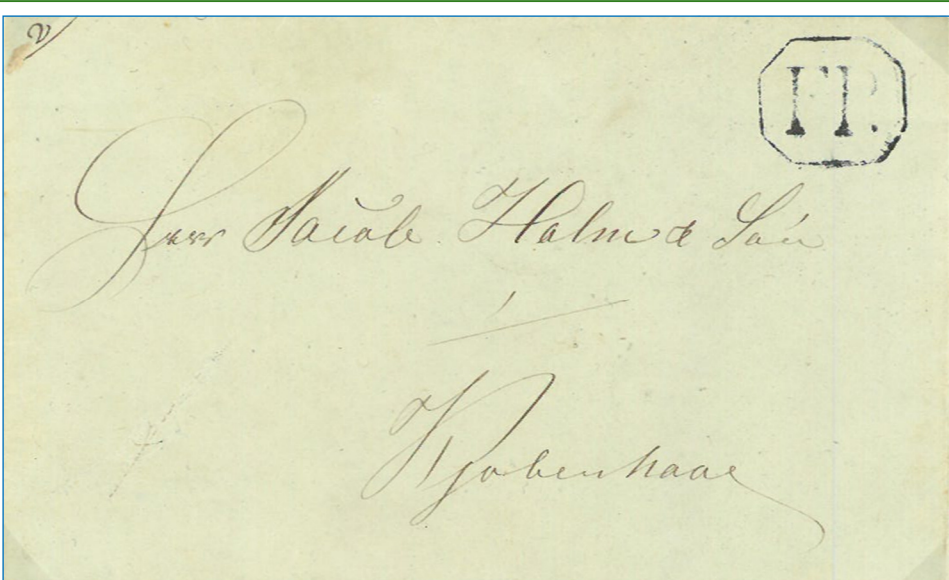 FP.
Herr Jacob Holm & Søn
i
Kjøbenhavn